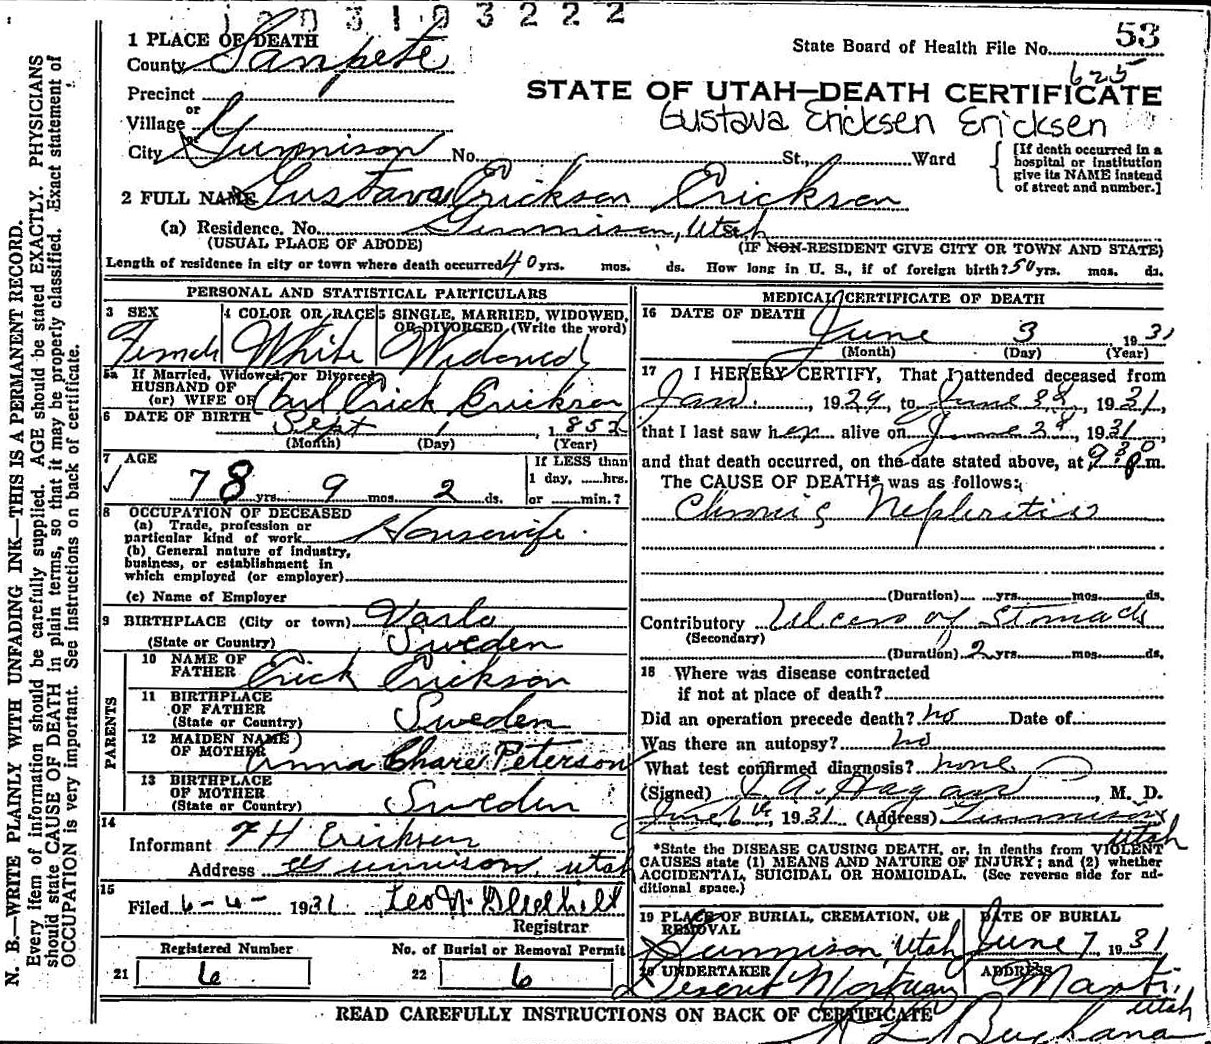 1203103222
1 PLACE OF DEATH
County Sanpete
State Board of Health File No. 53
625
Precinct
or
Village
or
City Gunnison No. St., Ward
STATE OF UTAH—DEATH CERTIFICATE
Gustava Ericksen Ericksen
[If death occurred in a
hospital or institution
give its NAME instead
of street and number.]
2 FULL NAME Gustava Erickson Erickson
(a) Residence. No. Gunnison, Utah
(USUAL PLACE OF ABODE) (IF NON-RESIDENT GIVE CITY OR TOWN AND STATE)
Length of residence in city or town where death occurred 40 yrs. mos. ds. How long in U. S., if of foreign birth? 50 yrs. mos. ds.
PERSONAL AND STATISTICAL PARTICULARS
3 SEX 4 COLOR OR RACE 5 SINGLE, MARRIED, WIDOWED,
OR DIVORCED (Write the word)
Female White Widowed
5a If Married, Widowed, or Divorced
HUSBAND OF
(or) WIFE OF Carl Erick Erickson
6 DATE OF BIRTH Sept 1, 1852
(Month) (Day) (Year)
7 AGE If LESS than
1 day, ......hrs.
78 yrs. 9 mos. 2 ds. or ......min.?
8 OCCUPATION OF DECEASED
(a) Trade, profession or
particular kind of work Housewife.
(b) General nature of industry,
business, or establishment in
which employed (or employer)
(c) Name of Employer
9 BIRTHPLACE (City or town)
(State or Country) Sweden
PARENTS
10 NAME OF
FATHER Erick Erickson
11 BIRTHPLACE
OF FATHER
(State or Country) Sweden
12 MAIDEN NAME
OF MOTHER Anna Peterson
13 BIRTHPLACE
OF MOTHER
(State or Country) Sweden
14
Informant F H Ericksen
Address Gunnison, Utah
15
Filed 6-4- 1931 Leo N.
Registrar
Registered Number No. of Burial or Removal Permit
21 6 22 6
MEDICAL CERTIFICATE OF DEATH
16 DATE OF DEATH
June 3 1931
(Month) (Day) (Year)
17 I HEREBY CERTIFY, That I attended deceased from
Jan. , 1929, to June , 1931,
that I last saw her alive on June , 1931,
and that death occurred, on the date stated above, at m.
The CAUSE OF DEATH* was as follows:
Chronic Nephritis
(Duration) yrs. mos. ds.
Contributory Ulcers of Stomach
(Secondary)
(Duration) 2 yrs. mos. ds.
18 Where was disease contracted
if not at place of death?
Did an operation precede death? no Date of
Was there an autopsy? no
What test confirmed diagnosis? none
(Signed) J. A. Hagan, M. D.
June 6th, 1931 (Address) Gunnison
Utah
*State the DISEASE CAUSING DEATH, or, in deaths from VIOLENT
CAUSES state (1) MEANS AND NATURE OF INJURY; and (2) whether
ACCIDENTAL, SUICIDAL OR HOMICIDAL. (See reverse side for ad-
ditional space.)
19 PLACE OF BURIAL, CREMATION, OR
REMOVAL DATE OF BURIAL
Gunnison, Utah June 7, 1931
20 UNDERTAKER ADDRESS
Deseret Mortuary Manti,
Utah
READ CAREFULLY INSTRUCTIONS ON BACK OF CERTIFICATE
Buchanan
N. B.—WRITE PLAINLY WITH UNFADING INK—THIS IS A PERMANENT RECORD.
Every item of information should be carefully supplied. AGE should be stated EXACTLY. PHYSICIANS
should state CAUSE OF DEATH in plain terms, so that it may be properly classified. Exact statement of
OCCUPATION is very important. See instructions on back of certificate.